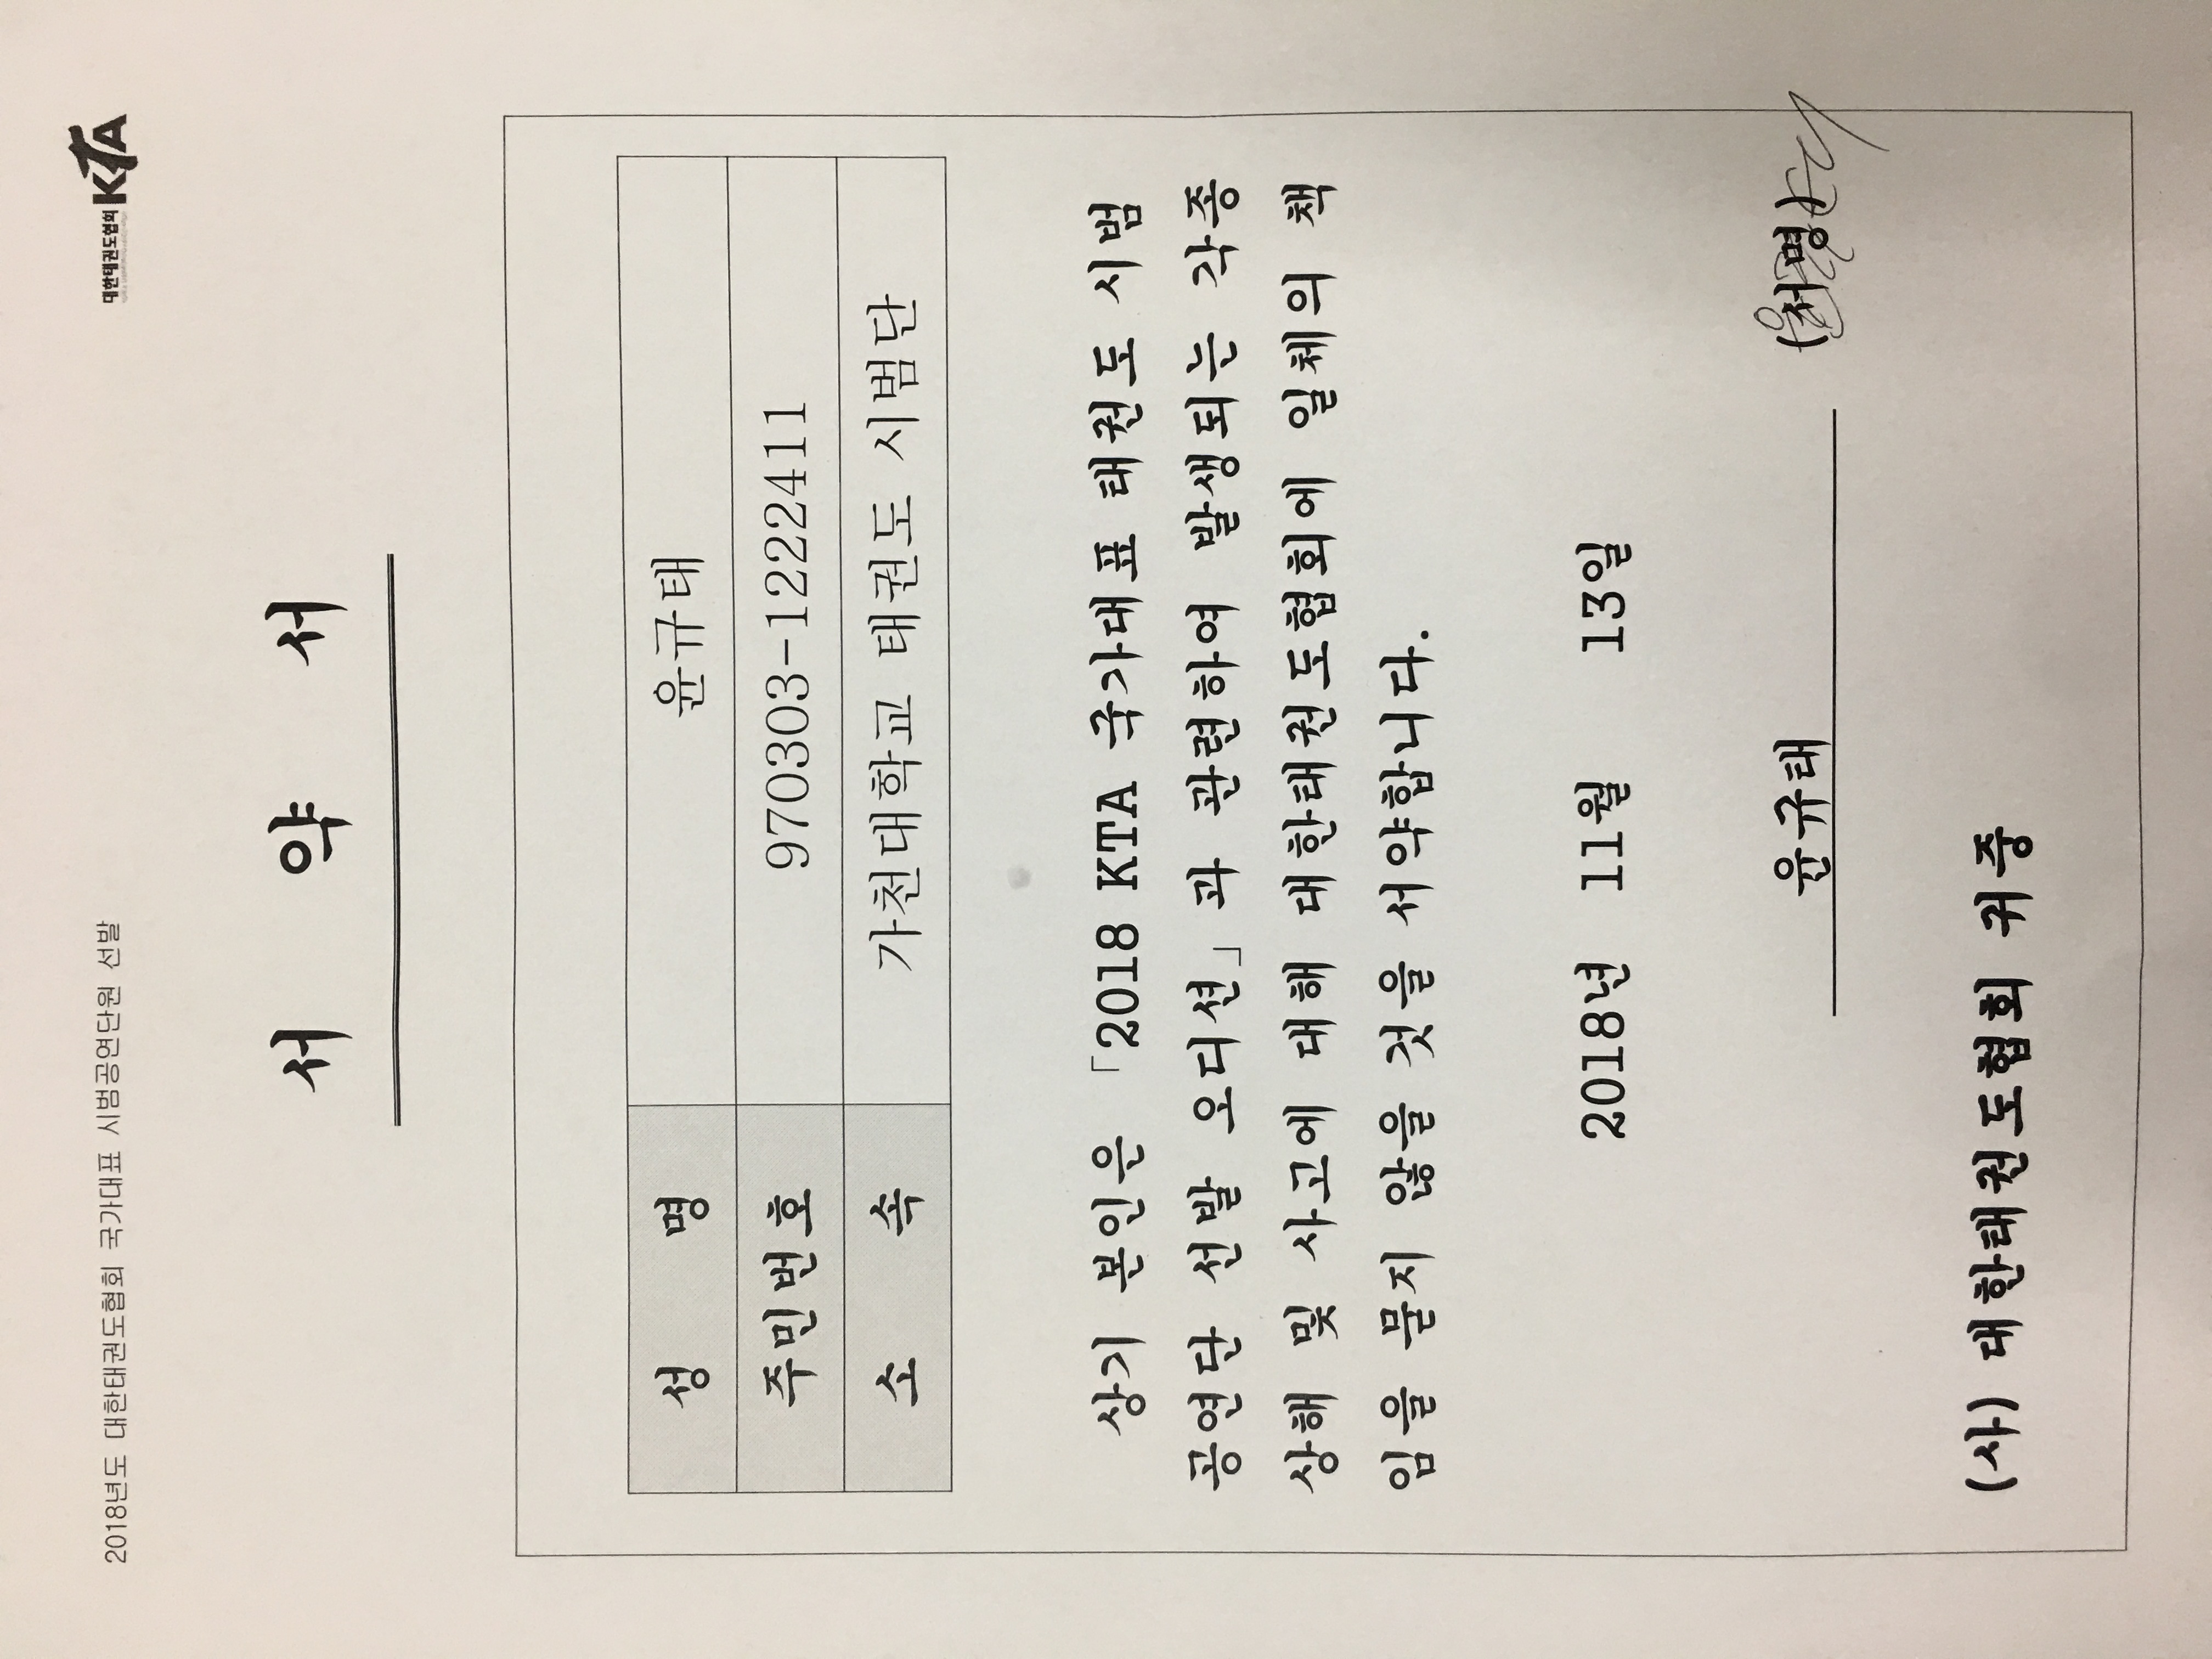 2018년도 대한태권도협회 국가대표 시범공연단원 선발
대한태권도협회 KTA
서 약 서
성 명 윤규태
주민번호 970303-1222411
소 속 가천대학교 태권도 시범단
상기 본인은 「2018 KTA 국가대표 태권도 시범
공연단 선발 오디션」과 관련하여 발생되는 각종
상해 및 사고에 대해 대한태권도협회에 일체의 책
임을 묻지 않을 것을 서약합니다.
2018년 11월 13일
윤규태 (서명)
(사) 대한태권도협회 귀중